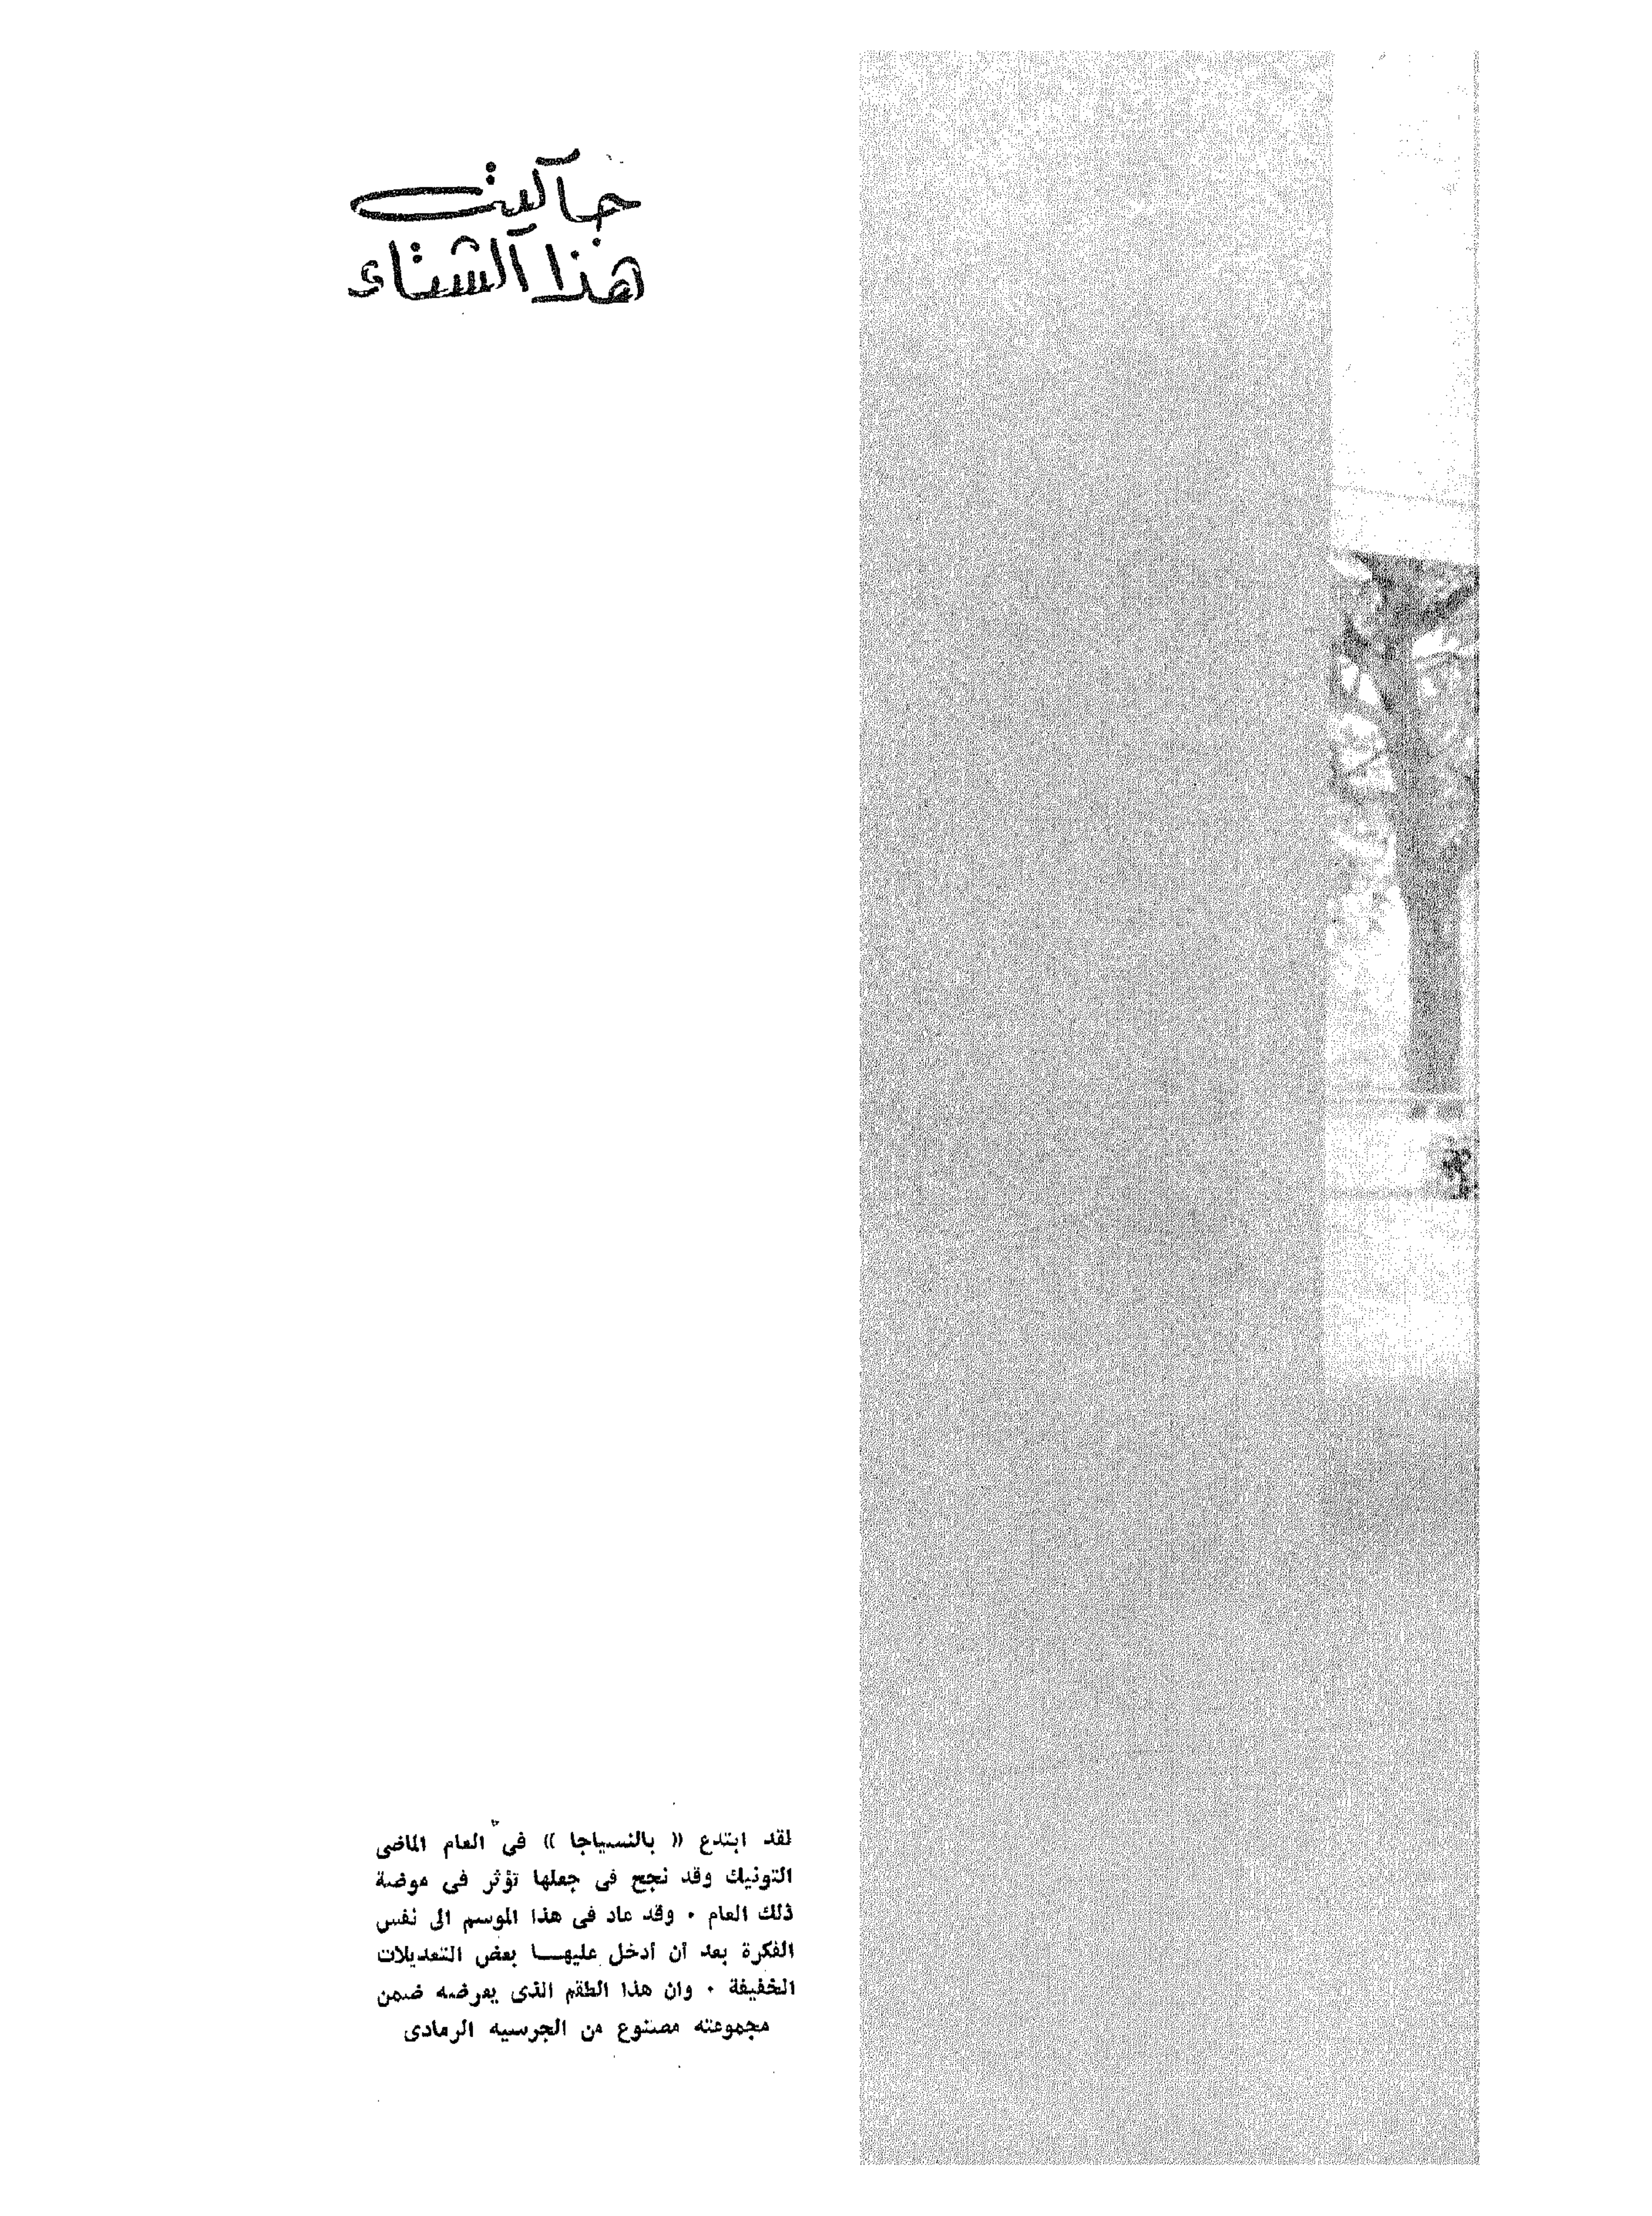 جاكيت
هذا الشتاء
لقد ابتدع « بالنسياجا » فى العام الماضى
التونيك وقد نجح فى جعلها تؤثر فى موضة
ذلك العام . وقد عاد فى هذا الموسم الى نفس
الفكرة بعد أن أدخل عليهـــا بعض التعديلات
الخفيفة . وان هذا الطقم الذى يعرضه ضمن
مجموعته مصنوع من الجرسيه الرمادى